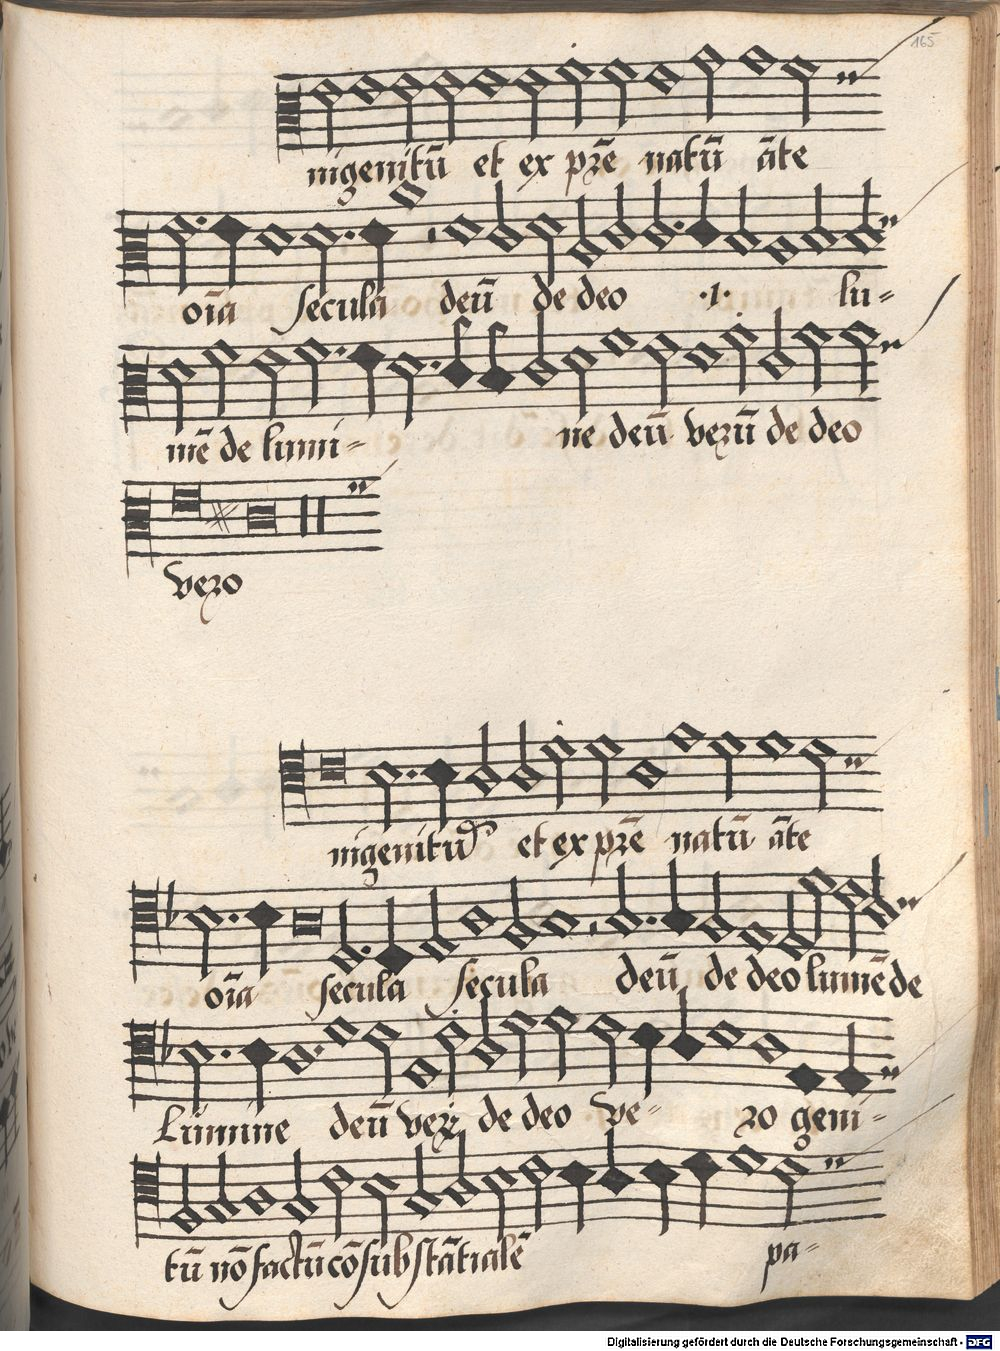 165
nigenitū et ex pr̄e natū āte
oīa secula deū de deo ·1· lu=
mē de lumi= ne deū verū de deo
vero
nigenitū et ex pr̄e natū āte
oīa secula secula deū de deo lumē de
Lumine deū de deo ve= ro geni=
tū nō factū cōsubstātialē pa=
Digitalisierung gefördert durch die Deutsche Forschungsgemeinschaft - DFG